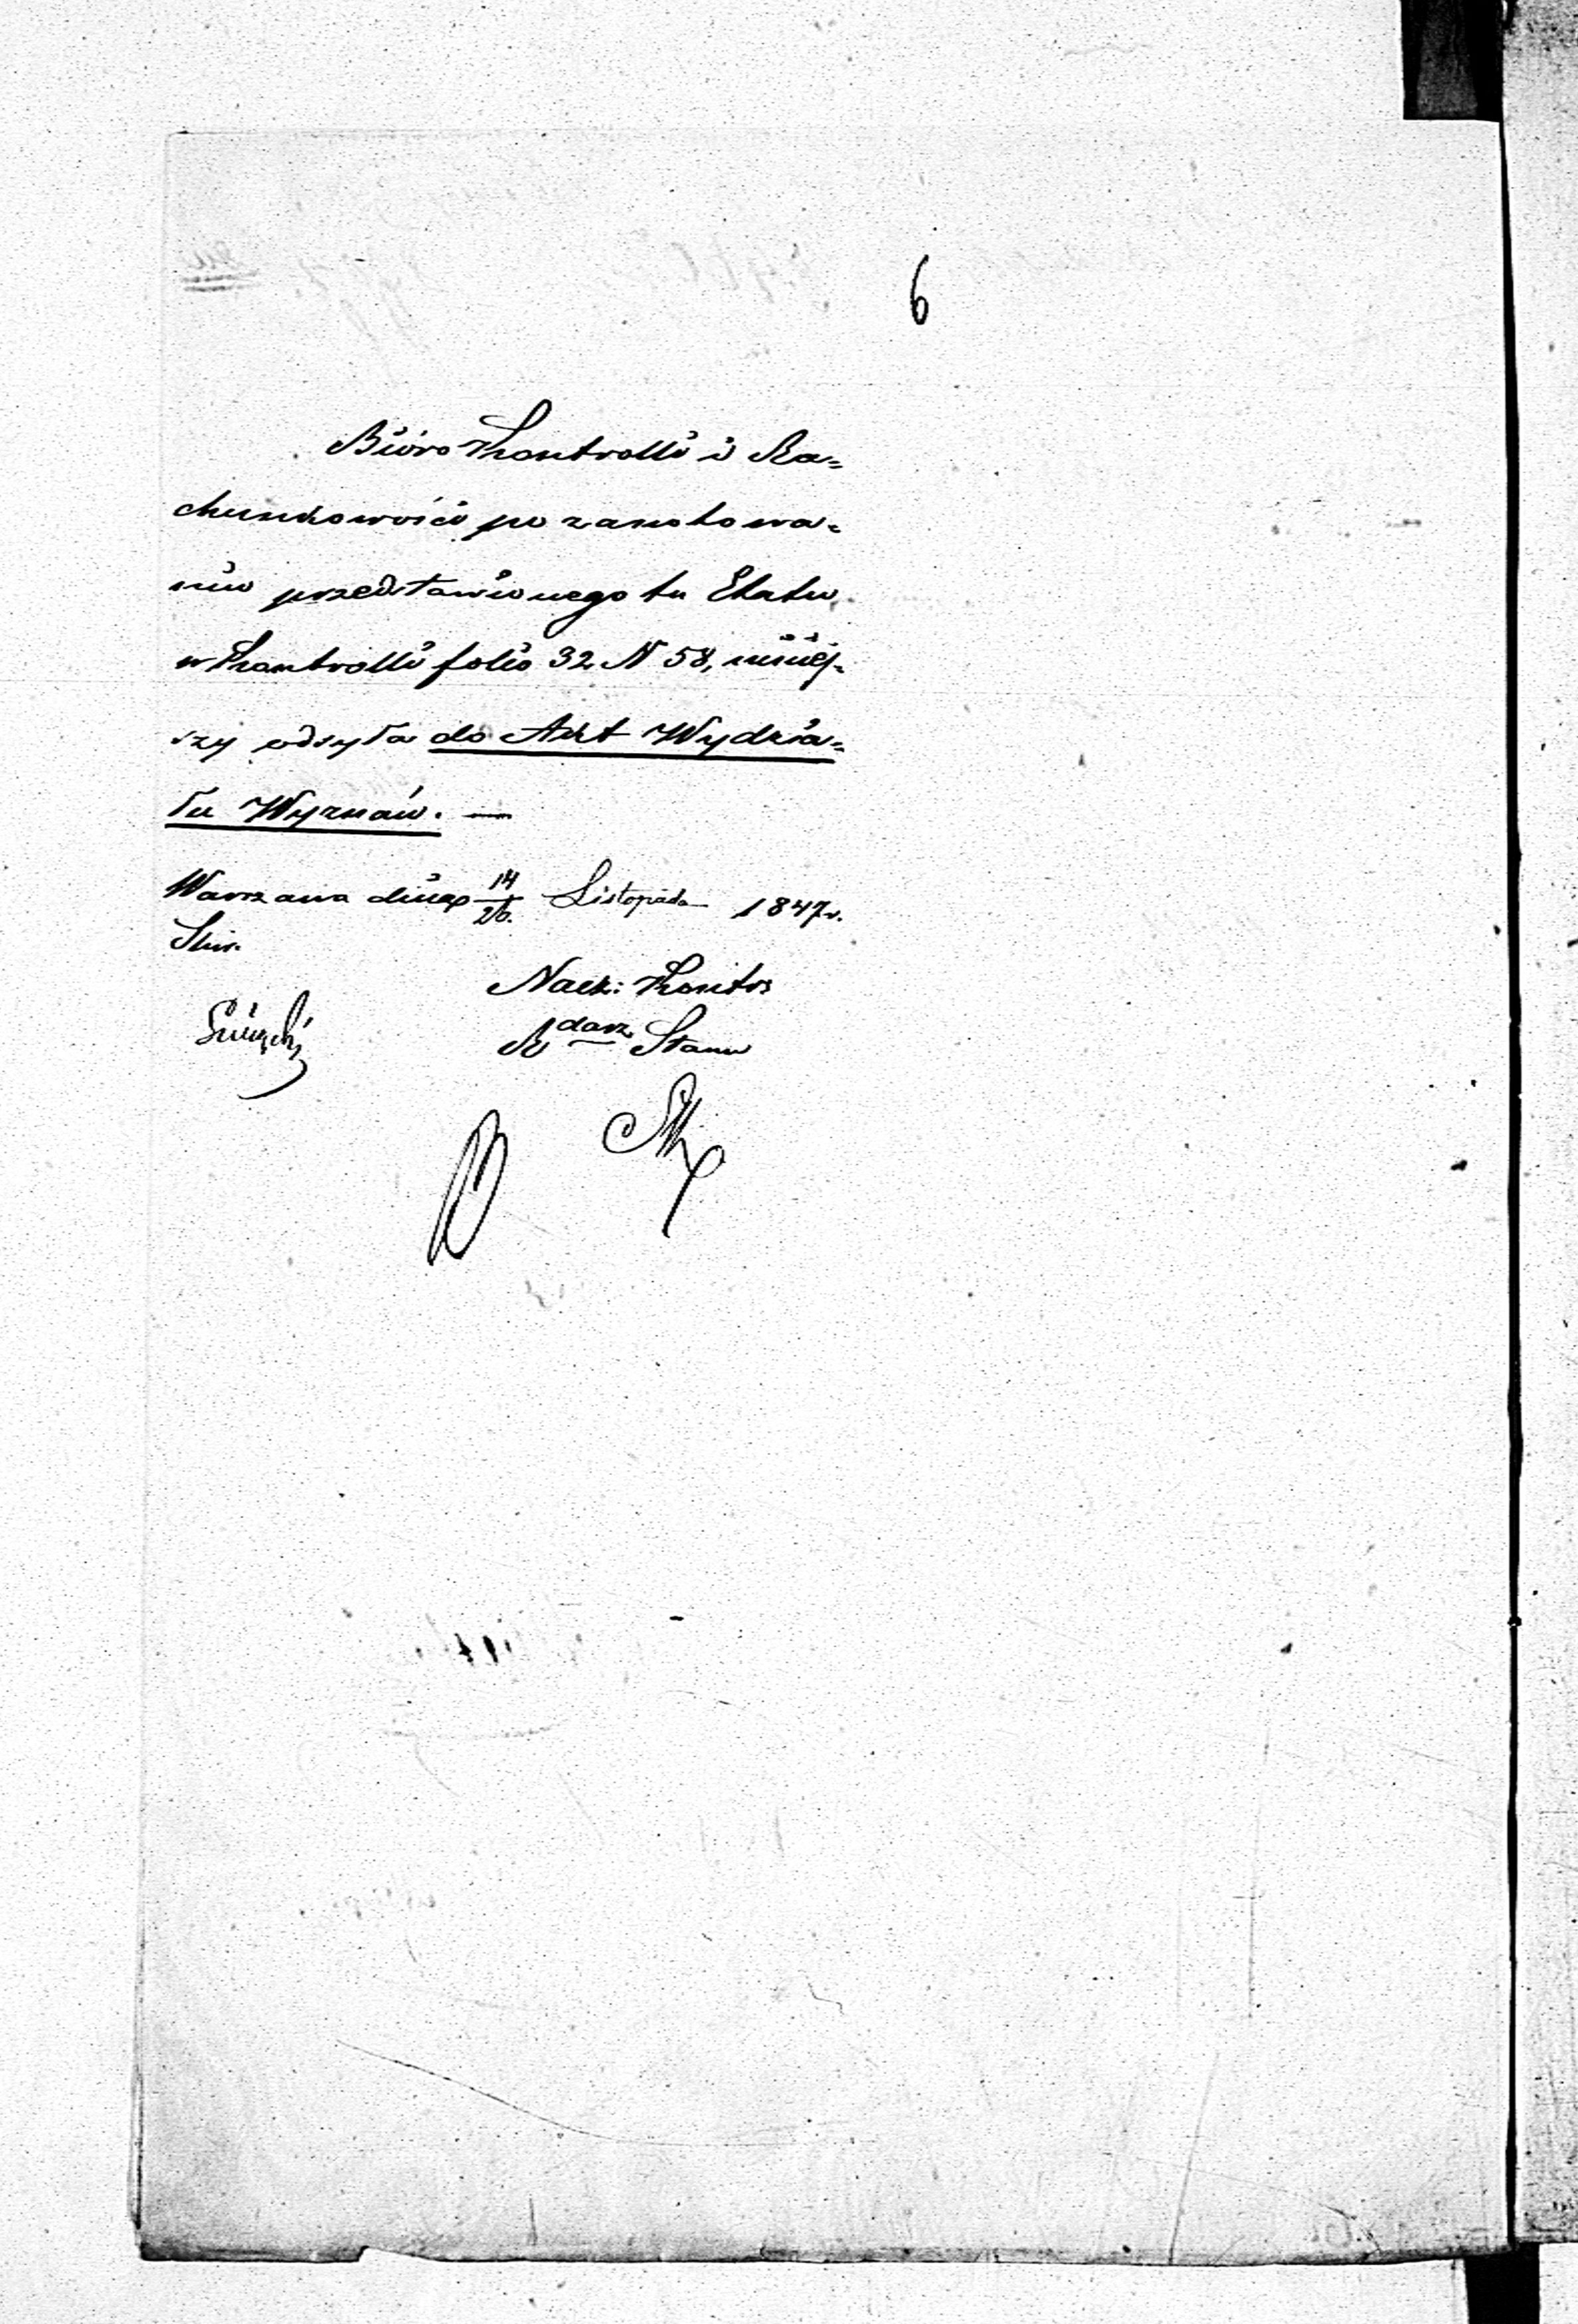 6
Biuro Kontrolli i Ra=
chunkowości po zanotowa=
niu przedstawionego tu Etatu
w Kontrolli folio 32 N 58, niniej=
szy odsyła do Akt Wydzia=
łu Wyznań. —
Warszawa dnia 14/26 Listopada 1847 r.
Nacz: Kontr
Rdca Stanu